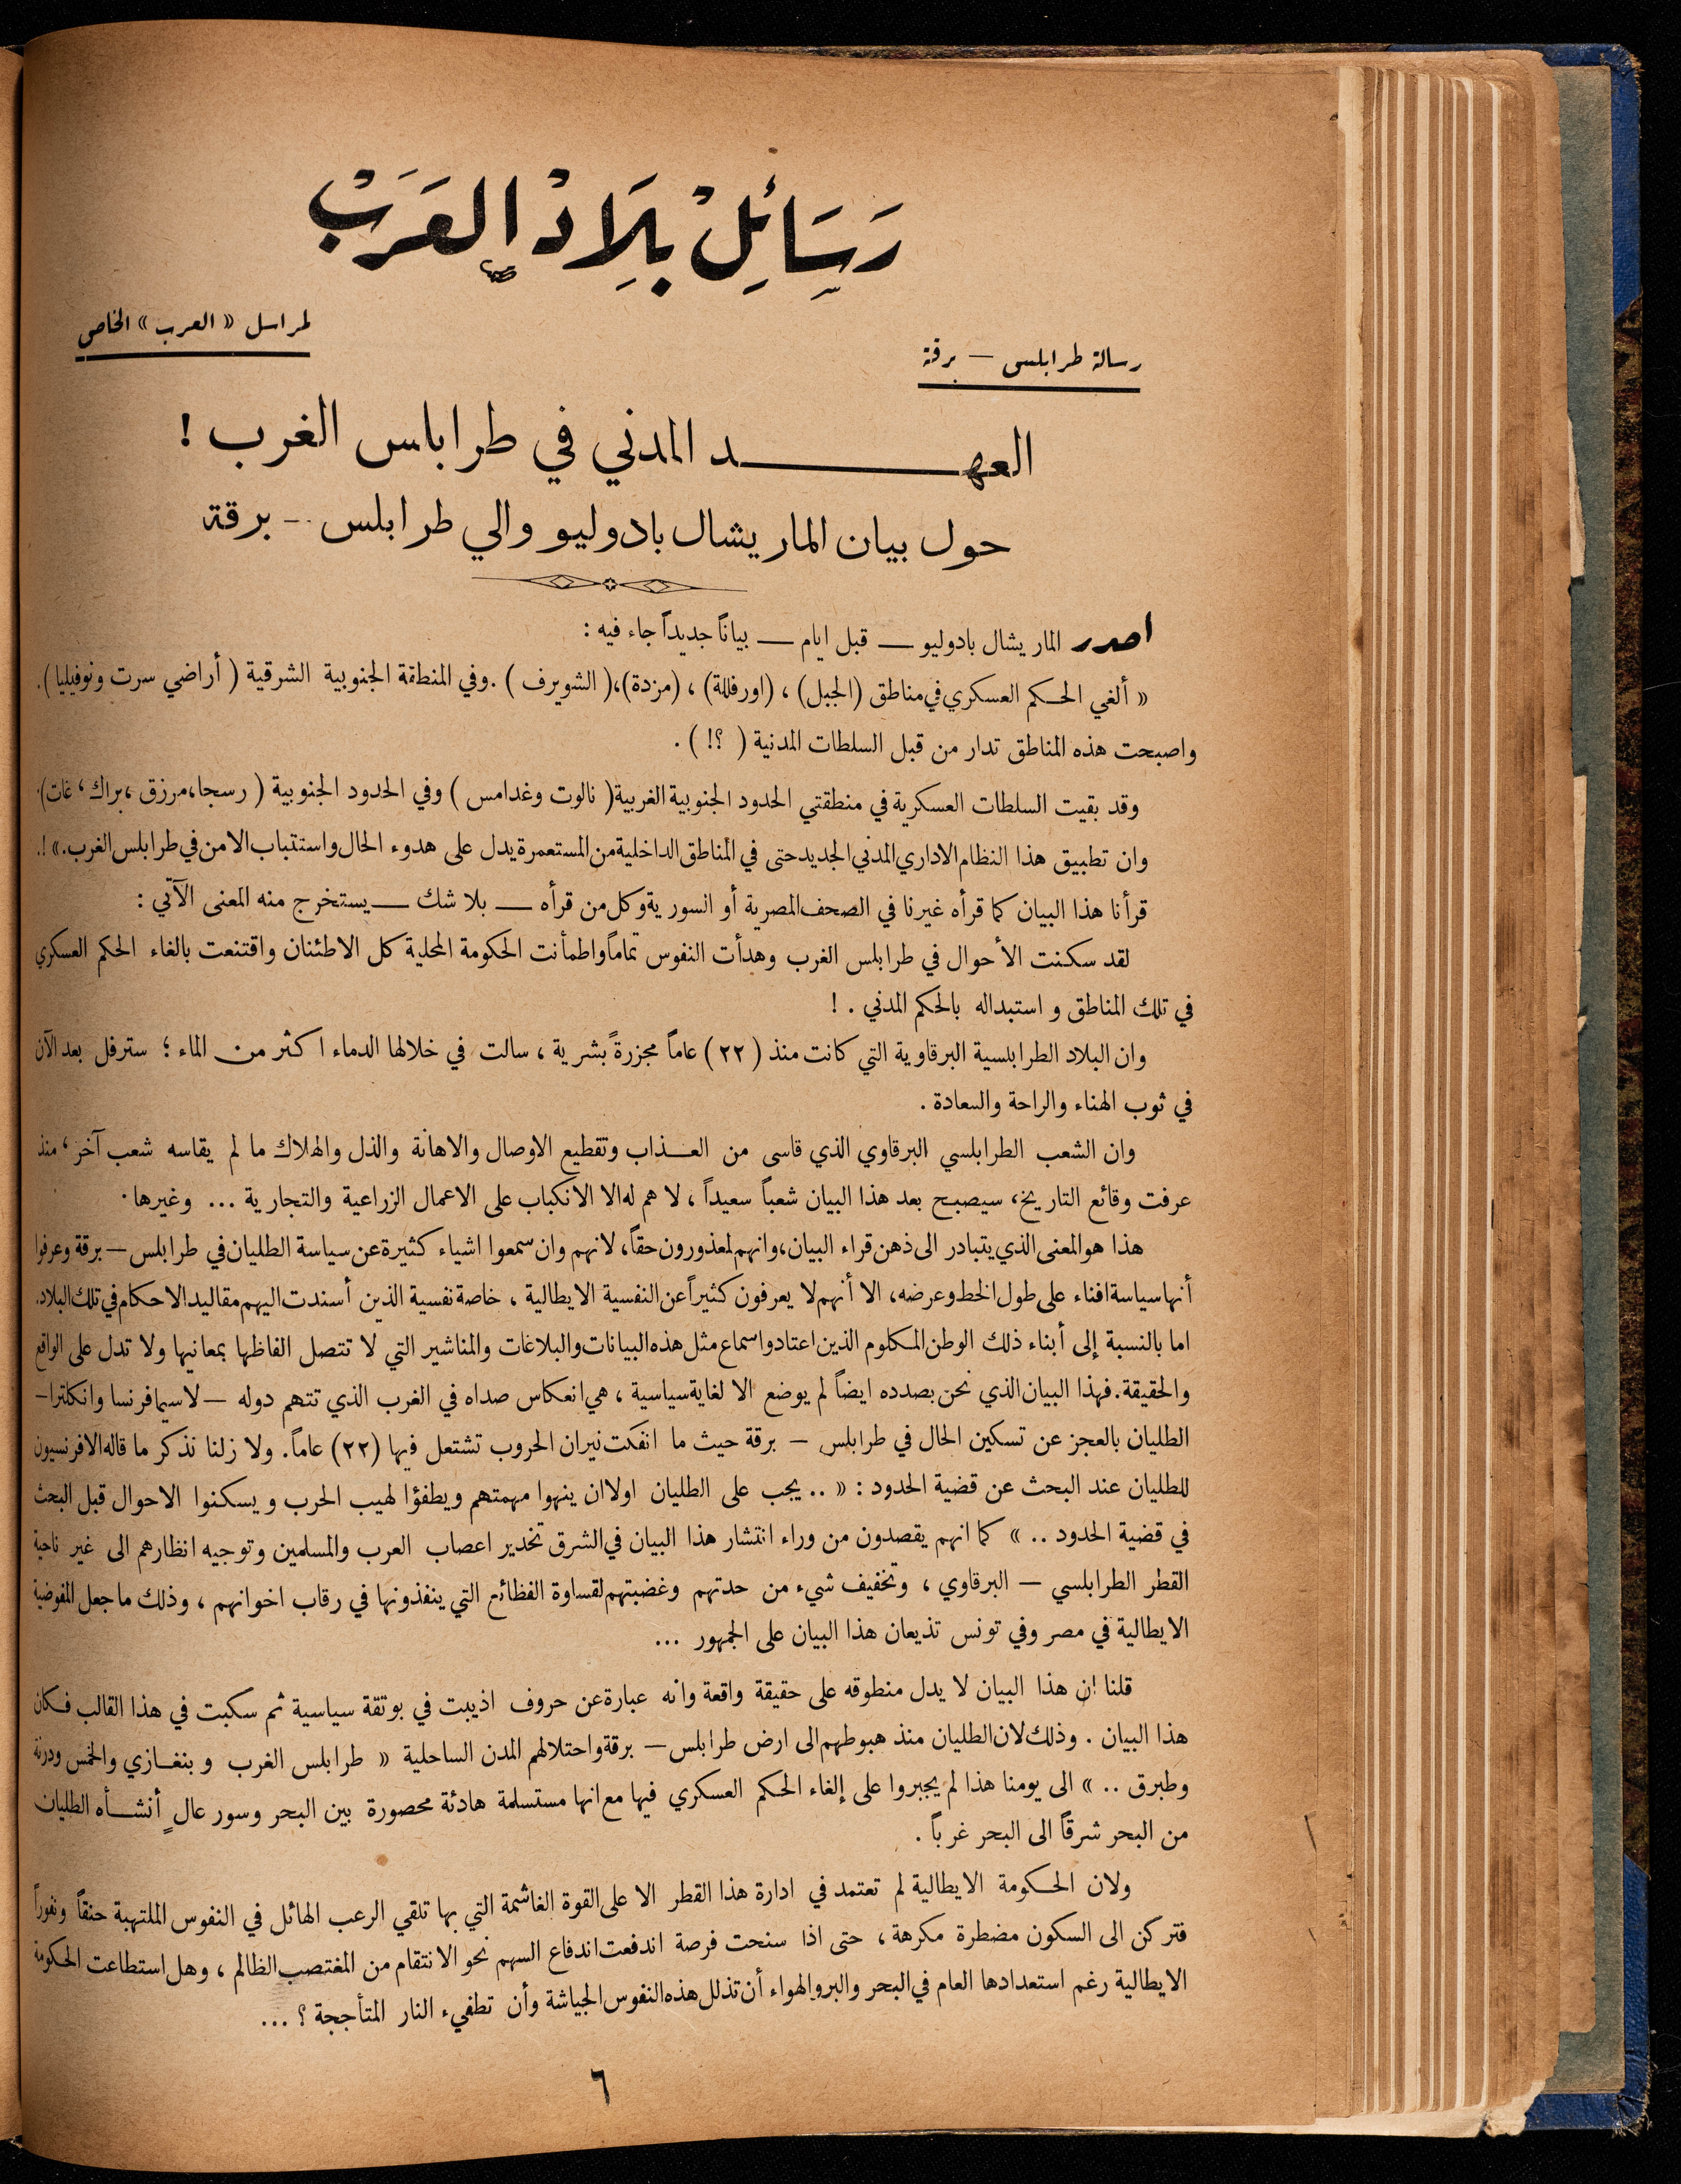 رَسَائِلْ بِلَادْ العَرَبْ
رسالة طرابلس — برقة
لمراسل « العرب » الخاص
العهـــــــــد المدني في طرابلس الغرب !
حول بيان الماريشال بادوليو والي طرابلس -- برقة
اصدر الماريشال بادوليو — قبل ايام — بياناً جديداً جاء فيه :
« ألغي الحكم العسكري في مناطق (الجبل) ، (اورفللة) ، (مزدة)،( الشويرف ) .وفي المنطقة الجنوبية الشرقية ( أراضي سرت ونوفيليا ).
واصبحت هذه المناطق تدار من قبل السلطات المدنية ( ؟! ) .
وقد بقيت السلطات العسكرية في منطقتي الحدود الجنوبية الغربية( نالوت وغدامس ) وفي الحدود الجنوبية ( رسجا،مرزق ،براك، غات).
وان تطبيق هذا النظام الاداري المدني الجديد حتى في المناطق الداخلية من المستعمرة يدل على هدوء الحال واستتباب الامن في طرابلس الغرب.» !.
قرأنا هذا البيان كما قرأه غيرنا في الصحف المصرية أو السورية وكل من قرأه — بلا شك — يستخرج منه المعنى الآتي :
لقد سكنت الأحوال في طرابلس الغرب وهدأت النفوس تماماً واطمأنت الحكومة المحلية كل الاطئنان واقتنعت بالغاء الحكم العسكري
في تلك المناطق و استبداله بالحكم المدني . !
وان البلاد الطرابلسية البرقاوية التي كانت منذ ( ٢٢ ) عاماً مجزرةً بشرية ، سالت في خلالها الدماء اكثر من الماء ؛ سترفل بعد الآن
في ثوب الهناء والراحة والسعادة .
وان الشعب الطرابلسي البرقاوي الذي قاسى من العـذاب وتقطيع الاوصال والاهانة والذل والهلاك ما لم يقاسه شعب آخر ، منذ
عرفت وقائع التاريخ، سيصبح بعد هذا البيان شعباً سعيداً ، لا هم له الا الانكباب على الاعمال الزراعية والتجارية ... وغيرها .
هذا هو المعنى الذي يتبادر الى ذهن قراء البيان، وانهم لمعذورون حقاً، لانهم وان سمعوا اشياء كثيرة عن سياسة الطليان في طرابلس — برقة وعرفوا
أنها سياسة افناء على طول الخط وعرضه، الا أنهم لا يعرفون كثيراً عن النفسية الايطالية ، خاصة نفسية الذين أسندت اليهم مقاليد الاحكام في تلك البلاد.
اما بالنسبة إلى أبناء ذلك الوطن المكلوم الذين اعتادوا سماع مثل هذه البيانات والبلاغات والمناشير التي لا تتصل الفاظها بمعانيها ولا تدل على الواقع
والحقيقة. فهذا البيان الذي نحن بصدده ايضاً لم يوضع الا لغاية سياسية ، هي انعكاس صداه في الغرب الذي تتهم دوله — لا سيما فرنسا وانكلترا —
الطليان بالعجز عن تسكين الحال في طرابلس – برقة حيث ما انفكت نيران الحروب تشتعل فيها (٢٢) عاماً. ولا زلنا نذكر ما قاله الافرنسيون
للطليان عند البحث عن قضية الحدود : « .. يجب على الطليان اولا ان ينهوا مهمتهم ويطفؤا لهيب الحرب ويسكنوا الاحوال قبل البحث
في قضية الحدود .. » كما انهم يقصدون من وراء انتشار هذا البيان في الشرق تخدير اعصاب العرب والمسلمين وتوجيه انظارهم الى غير ناحية
القطر الطرابلسي – البرقاوي ، وتخفيف شيء من حدتهم وغضبتهم لقساوة الفظائع التي ينفذونها في رقاب اخوانهم ، وذلك ما جعل المفوضية
الايطالية في مصر وفي تونس تذيعان هذا البيان على الجمهور ...
قلنا إن هذا البيان لا يدل منطوقه على حقيقة واقعة وانه عبارة عن حروف اذيبت في بوتقة سياسية ثم سكبت في هذا القالب فكان
هذا البيان . وذلك لان الطليان منذ هبوطهم الى ارض طرابلس — برقة واحتلالهم المدن الساحلية « طرابلس الغرب و بنغـازي والخمس ودرنة
وطبرق .. » الى يومنا هذا لم يجبروا على إلغاء الحكم العسكري فيها مع انها مستسلمة هادئة محصورة بين البحر وسور عالٍ أنشـأه الطليان
من البحر شرقاً الى البحر غرباً .
ولان الحـكومة الايطالية لم تعتمد في ادارة هذا القطر الا على القوة الغاشمة التي بها تلقي الرعب الهائل في النفوس الملتهبة حنقاً ونفوراً
فتركن الى السكون مضطرة مكرهة ، حتى اذا سنحت فرصة اندفعت اندفاع السهم نحو الانتقام من المغتصب الظالم ، وهل استطاعت الحكومة
الايطالية رغم استعدادها العام في البحر والبر والهواء أن تذلل هذه النفوس الجياشة وأن تطفيء النار المتأججة ؟ ...
٦